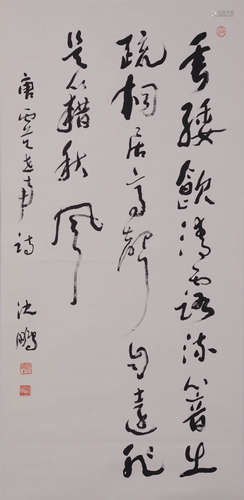 垂緌飲清露流響出
疏桐居高聲自遠非
是藉秋風
唐虞世南詩 沈鵬